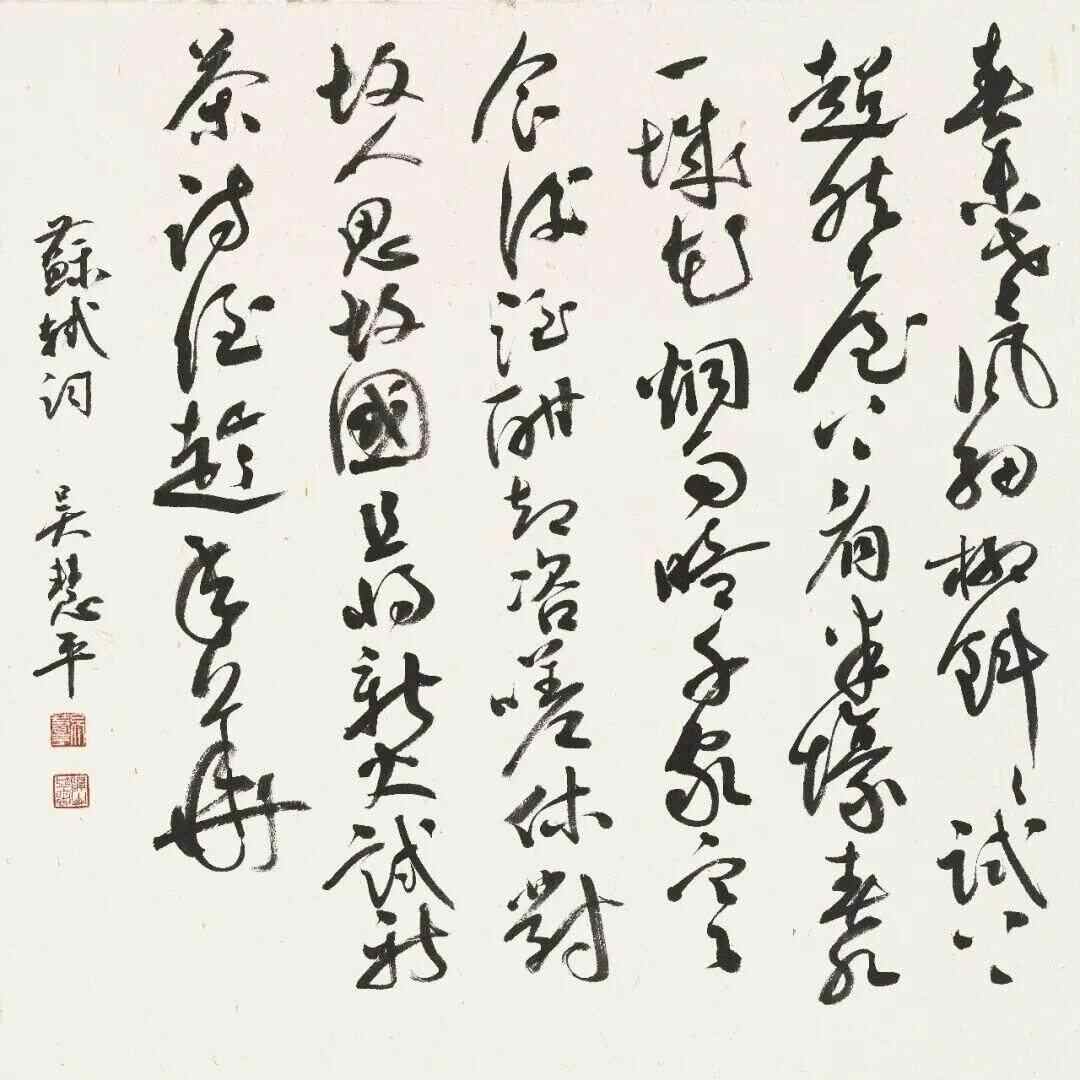 春未老風細柳斜〻試上
超然臺上看半壕春水
一城花烟雨暗千家寒
食後酒酣却咨嗟休對
故人思故國且將新火試新
茶詩酒趁年華
蘇軾詞 吴慧平